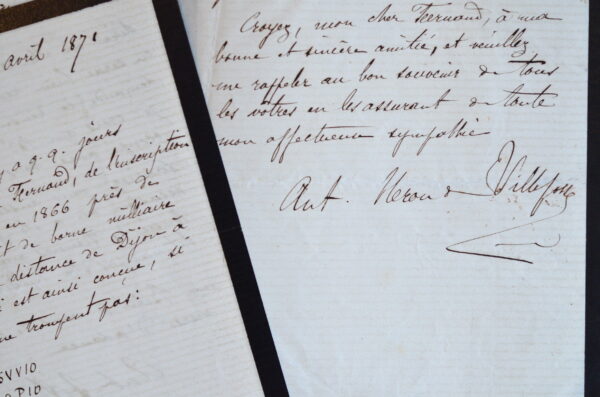 avril 1871
y a q.q. jours
Fernand, de l'inscription
en 1866 près de
t de borne milliaire
distance de Dijon à
i est ainsi conçue, si
ne trompent pas:
SVVIO
OPIO
Croyez, mon cher Fernand, à ma
bonne et sincère amitié, et veuillez
me rappeler au bon souvenir de tous
les vôtres en les assurant de toute
mon affectueuse sympathie
Ant. Heron de Villefosse